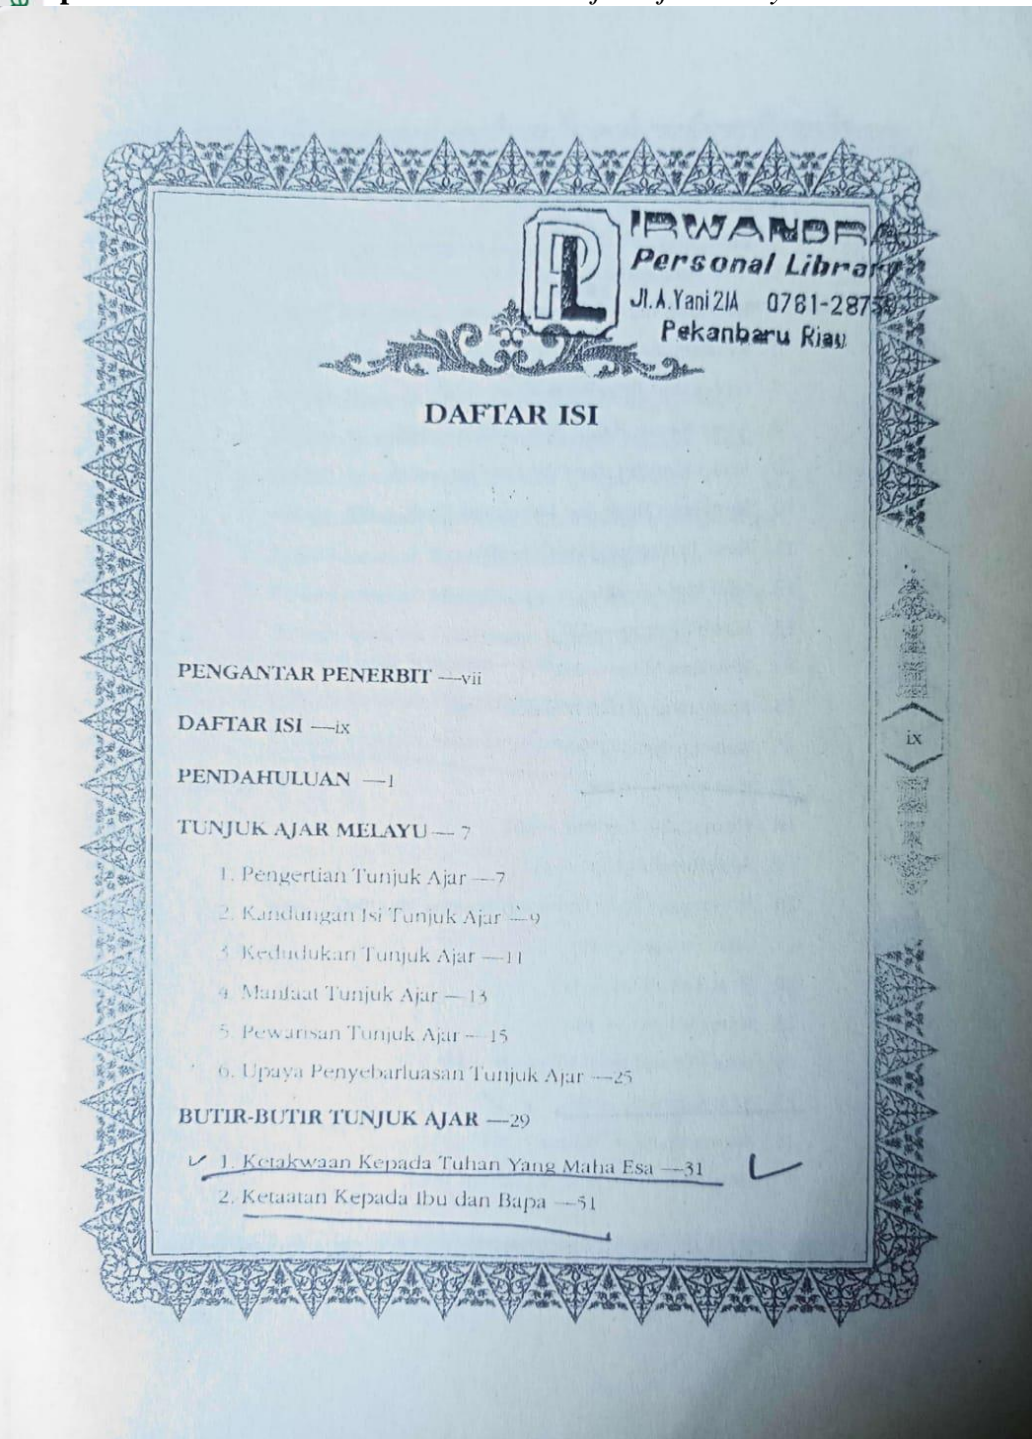 IRWANDRA
Personal Library
Jl.A.Yani 21A 0761-2875
Pekanbaru Riau
DAFTAR ISI
PENGANTAR PENERBIT —vii
DAFTAR ISI —ix
PENDAHULUAN —1
ix
TUNJUK AJAR MELAYU — 7
1. Pengertian Tunjuk Ajar —7
2. Kandungan Isi Tunjuk Ajar —9
3. Kedudukan Tunjuk Ajar —11
4. Manfaat Tunjuk Ajar —13
5. Pewarisan Tunjuk Ajar —15
6. Upaya Penyebarluasan Tunjuk Ajar —25
BUTIR-BUTIR TUNJUK AJAR —29
1. Ketakwaan Kepada Tuhan Yang Maha Esa —31
2. Ketaatan Kepada Ibu dan Bapa —51